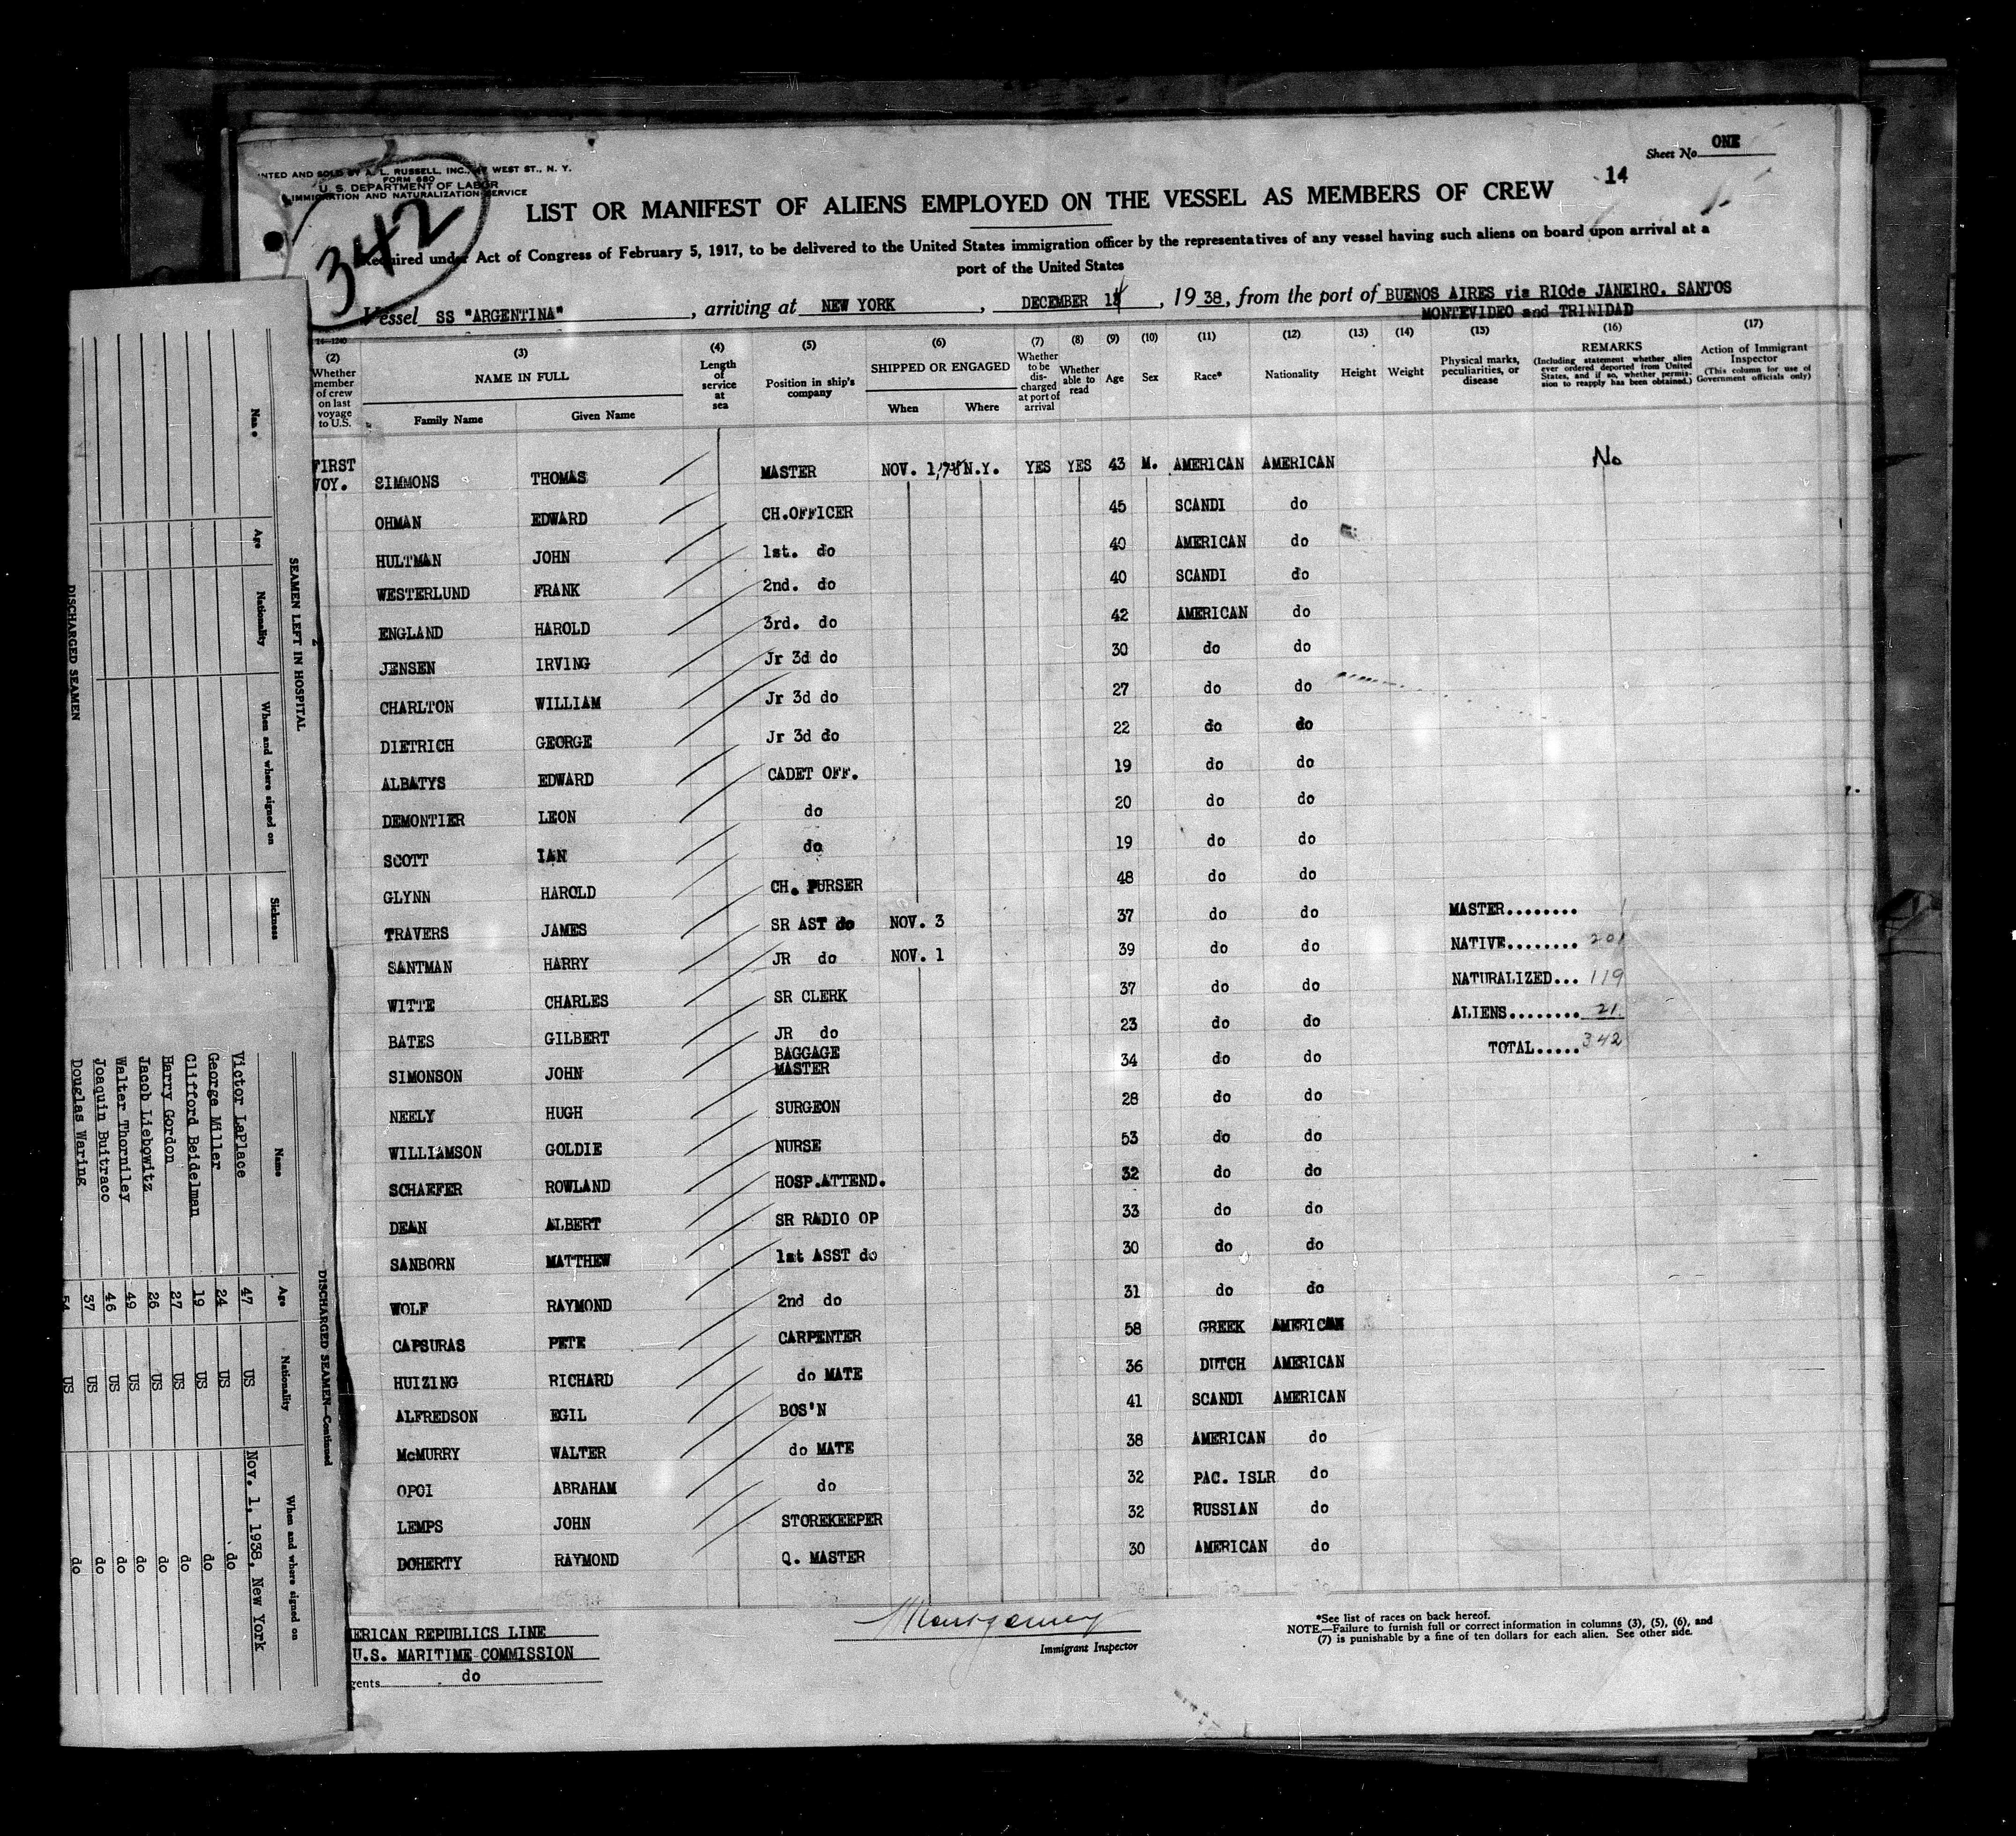 Sheet No. ONE
14
INTED AND SOLD BY A. L. RUSSELL, INC., WEST ST., N. Y.
FORM 680
U. S. DEPARTMENT OF LABOR
IMMIGRATION AND NATURALIZATION SERVICE
342
LIST OR MANIFEST OF ALIENS EMPLOYED ON THE VESSEL AS MEMBERS OF CREW
Required under Act of Congress of February 5, 1917, to be delivered to the United States immigration officer by the representatives of any vessel having such aliens on board upon arrival at a
port of the United States
Vessel SS "ARGENTINA", arriving at NEW YORK, DECEMBER 14, 1938, from the port of BUENOS AIRES via RIOde JANEIRO. SANTOS
MONTEVIDEO and TRINIDAD
14-1240
(2) Whether member of crew on last voyage to U.S.
(3) NAME IN FULL Family Name Given Name
(4) Length of service at sea
(5) Position in ship's company
(6) SHIPPED OR ENGAGED When Where
(7) Whether to be discharged at port of arrival
(8) Whether able to read
(9) Age
(10) Sex
(11) Race*
(12) Nationality
(13) Height
(14) Weight
(15) Physical marks, peculiarities, or disease
(16) REMARKS (Including statement whether alien ever ordered deported from United States, and if so, whether permission to reapply has been obtained.)
(17) Action of Immigrant Inspector (This column for use of Government officials only)
FIRST VOY. SIMMONS THOMAS MASTER NOV. 1, N.Y. YES YES 43 M. AMERICAN AMERICAN No
OHMAN EDWARD CH.OFFICER 45 SCANDI do
HULTMAN JOHN 1st. do 40 AMERICAN do
WESTERLUND FRANK 2nd. do 40 SCANDI do
ENGLAND HAROLD 3rd. do 42 AMERICAN do
JENSEN IRVING Jr 3d do 30 do do
CHARLTON WILLIAM Jr 3d do 27 do do
DIETRICH GEORGE Jr 3d do 22 do do
ALBATYS EDWARD CADET OFF. 19 do do
DEMONTIER LEON do 20 do do
SCOTT IAN do 19 do do
GLYNN HAROLD CH. PURSER 48 do do
TRAVERS JAMES SR AST do NOV. 3 37 do do MASTER........ 1
SANTMAN HARRY JR do NOV. 1 39 do do NATIVE........ 201
WITTE CHARLES SR CLERK 37 do do NATURALIZED... 119
BATES GILBERT JR do 23 do do ALIENS........ 21
SIMONSON JOHN BAGGAGE MASTER 34 do do TOTAL..... 342
NEELY HUGH SURGEON 28 do do
WILLIAMSON GOLDIE NURSE 53 do do
SCHAEFER ROWLAND HOSP.ATTEND. 32 do do
DEAN ALBERT SR RADIO OP 33 do do
SANBORN MATTHEW 1st ASST do 30 do do
WOLF RAYMOND 2nd do 31 do do
CAPSURAS PETE CARPENTER 58 GREEK AMERICAN
HUIZING RICHARD do MATE 36 DUTCH AMERICAN
ALFREDSON EGIL BOS'N 41 SCANDI AMERICAN
McMURRY WALTER do MATE 38 AMERICAN do
OPOI ABRAHAM do 32 PAC. ISLR do
LEMPS JOHN STOREKEEPER 32 RUSSIAN do
DOHERTY RAYMOND Q. MASTER 30 AMERICAN do
ERICAN REPUBLICS LINE
U.S. MARITIME COMMISSION
gents do
Montgomery
Immigrant Inspector
*See list of races on back hereof.
NOTE.—Failure to furnish full or correct information in columns (3), (5), (6), and
(7) is punishable by a fine of ten dollars for each alien. See other side.
SEAMEN LEFT IN HOSPITAL
Name Age Nationality When and where signed on Sickness
DISCHARGED SEAMEN
DISCHARGED SEAMEN—Continued
Name Age Nationality When and where signed on
Victor LaPlace 47 US Nov. 1, 1938, New York
George Miller 24 US do
Clifford Beidelman 19 US do
Harry Gordon 27 US do
Jacob Liebowitz 26 US do
Walter Thorniley 49 US do
Joaquin Buitraco 46 US do
Douglas Waring 37 US do
54 US